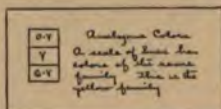 O-Y
Y
G-Y
Analogous Colors
A scale of hues has
colors of the same
family This is the
yellow family